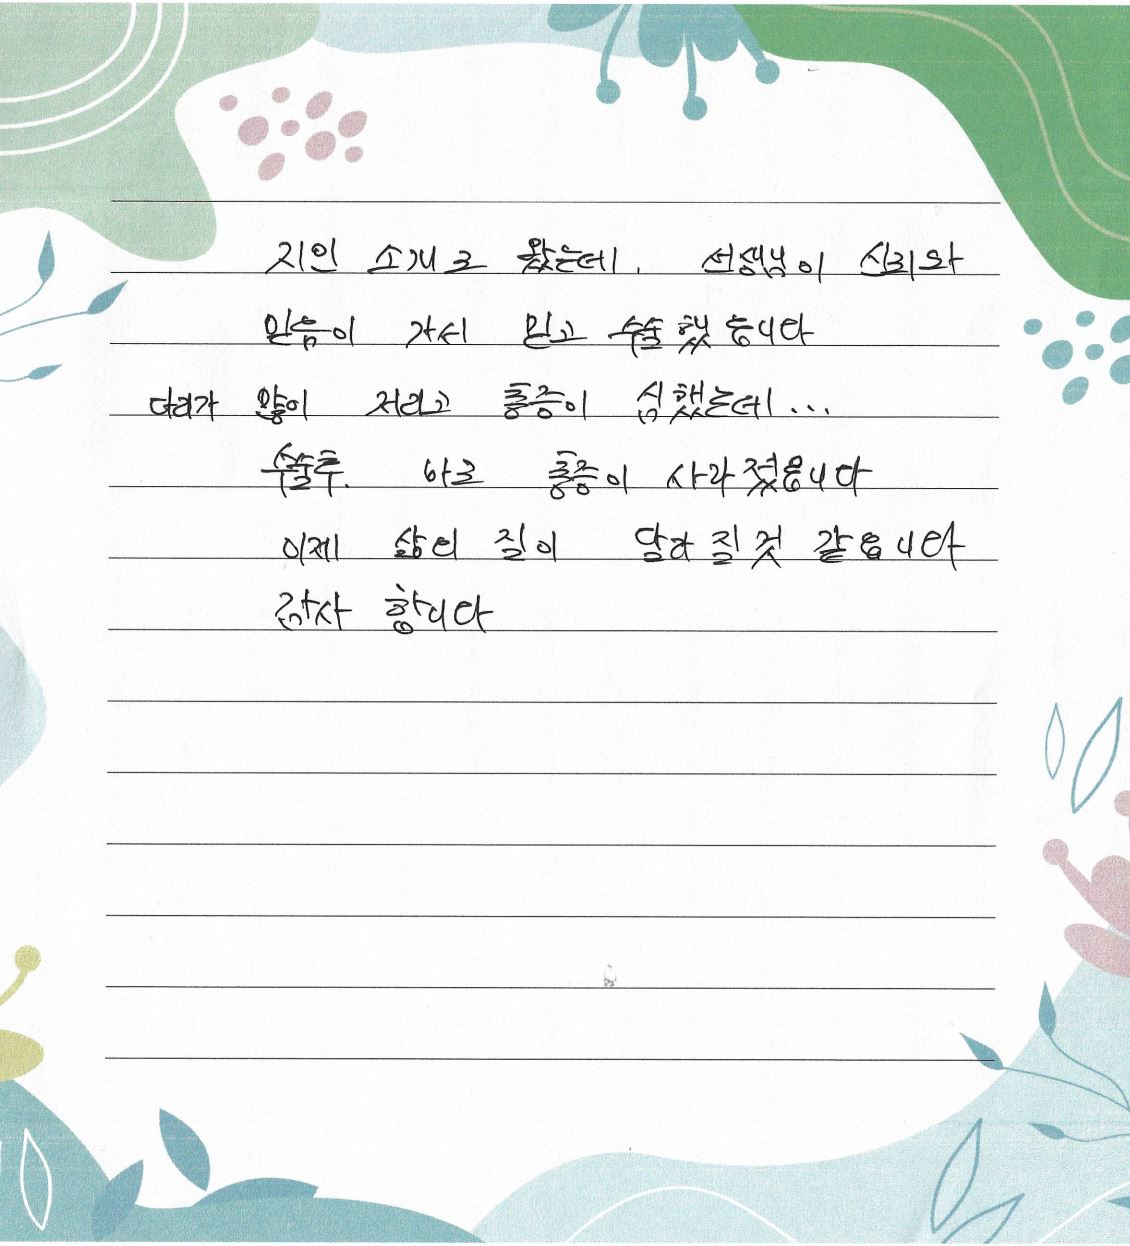 지인 소개로 왔는데. 선생님이 신뢰와
믿음이 가서 믿고 수술 했습니다
다리가 많이 저리고 통증이 심했는데...
수술후. 바로 통증이 사라졌읍니다
이제 삶의 질이 달라 질 것 같읍니다
감사 합니다